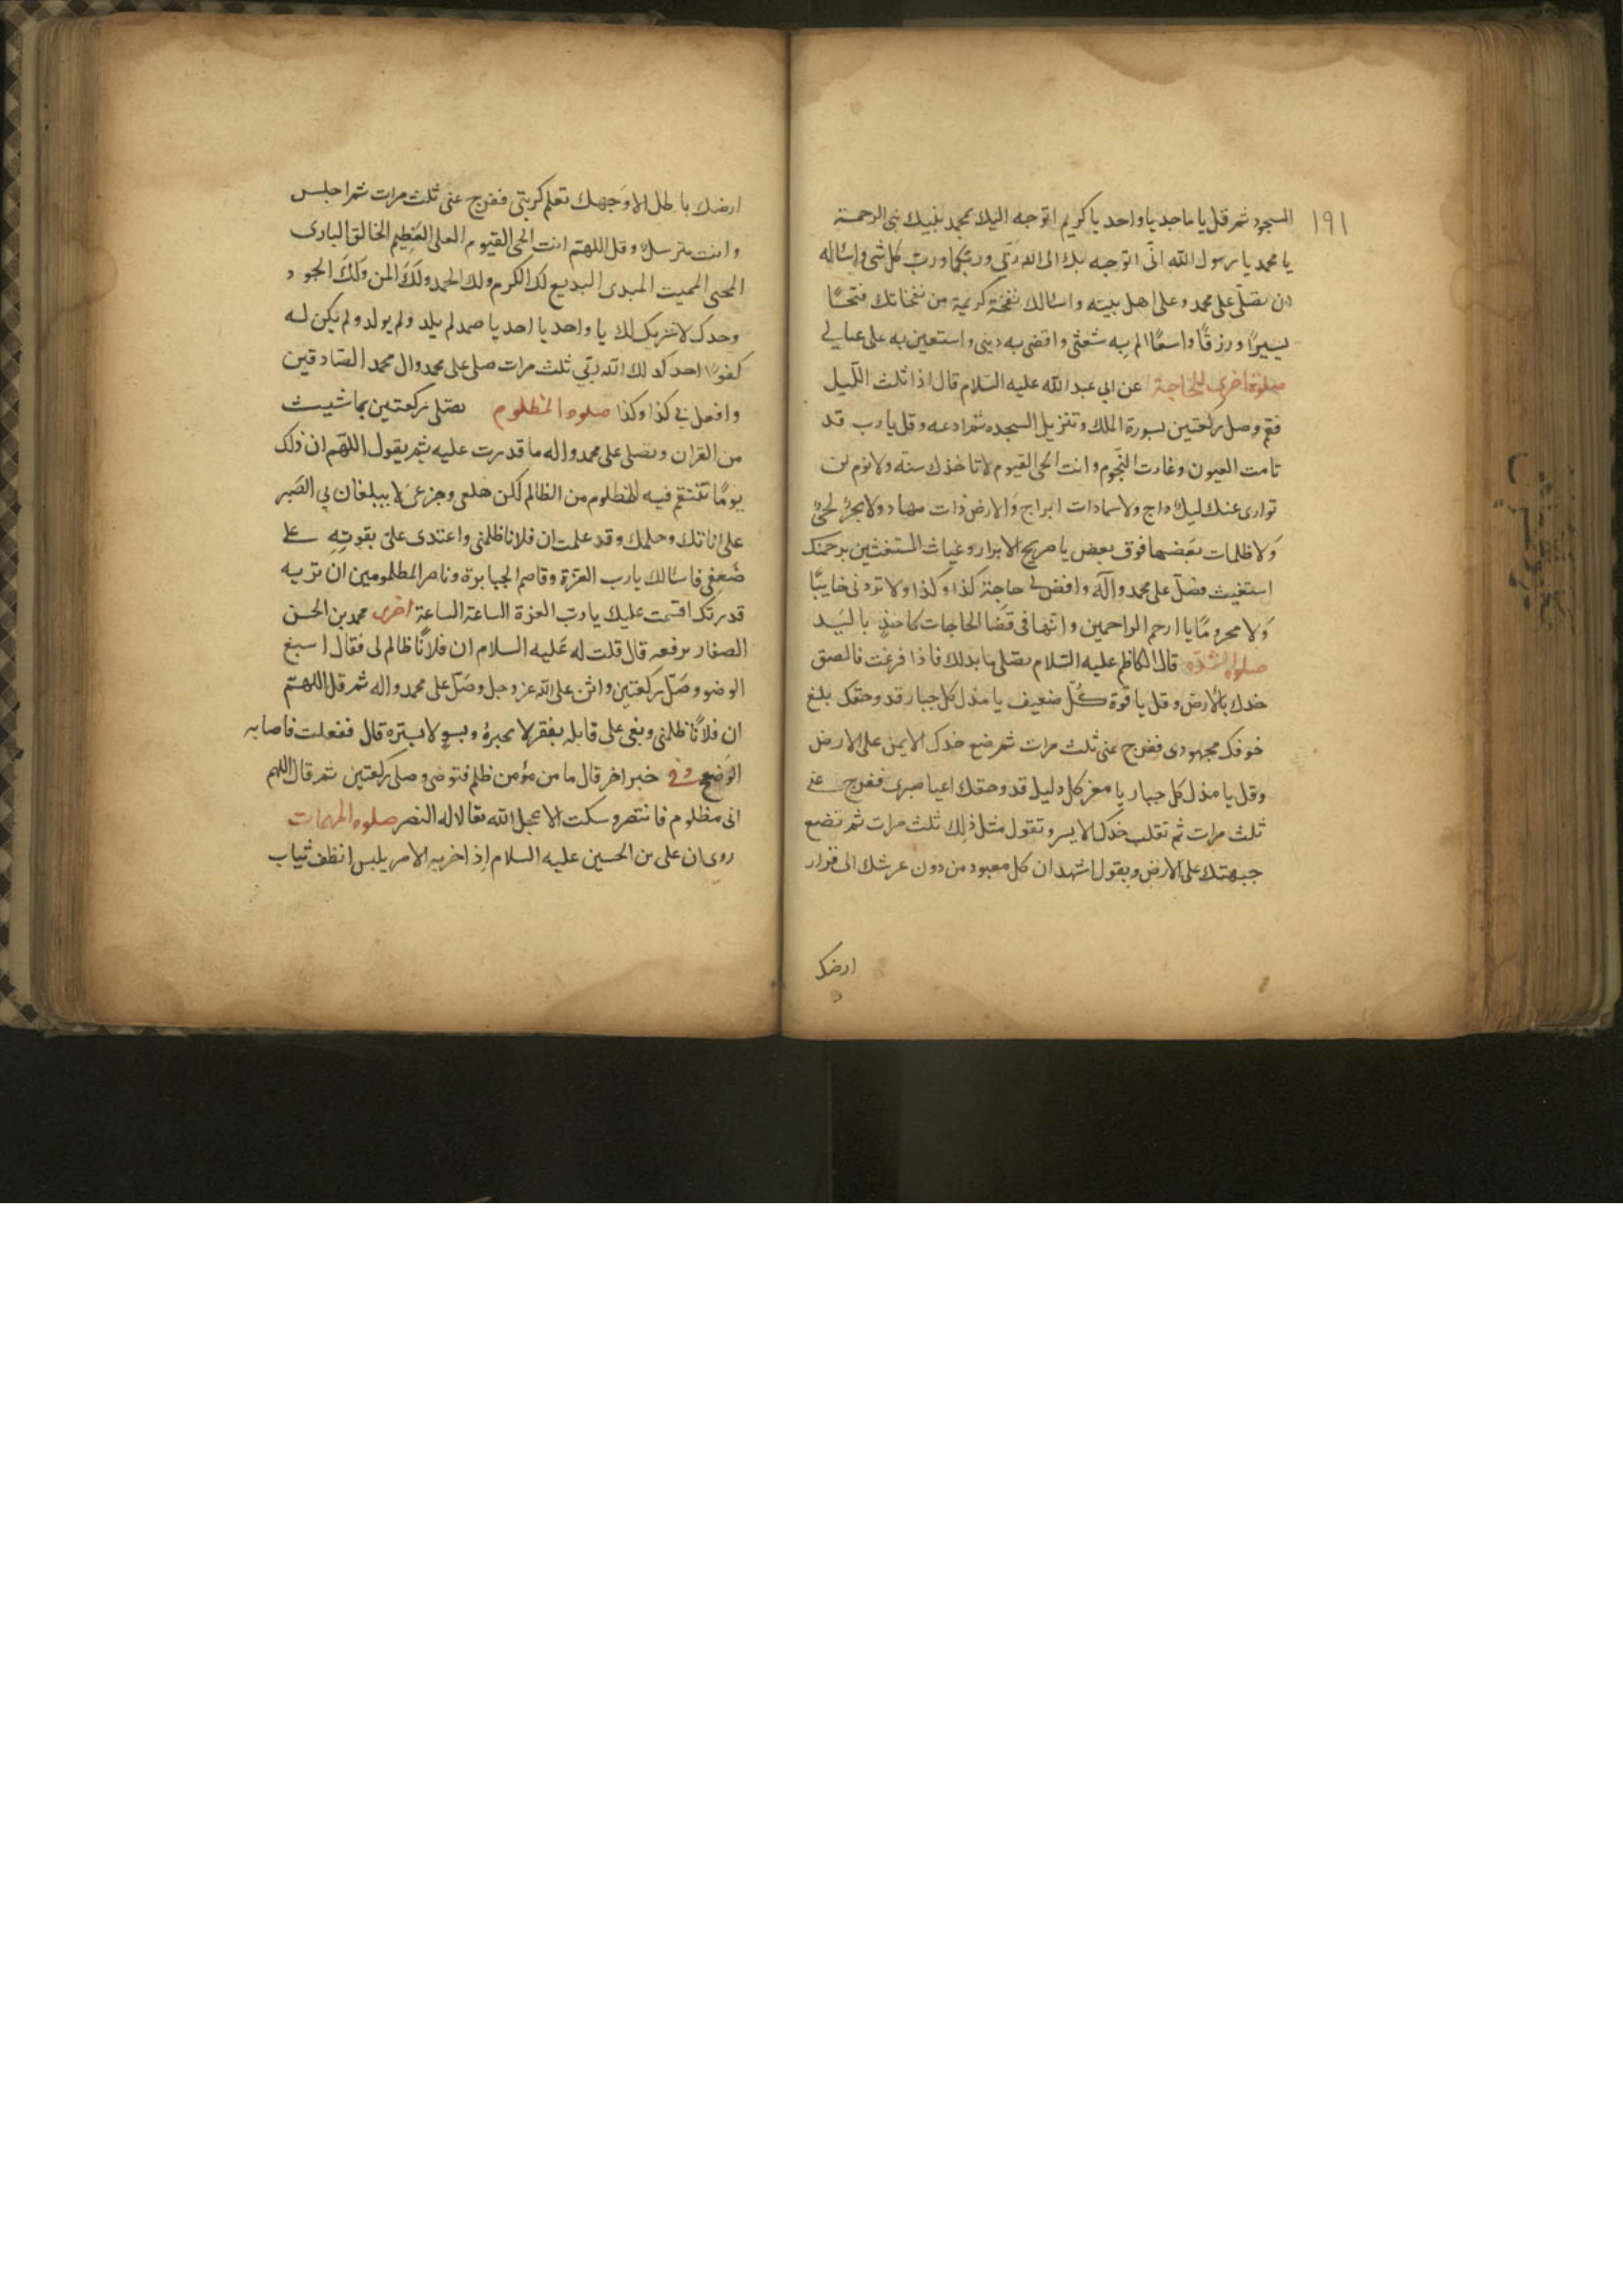 ١٩١
السجود ثم قل يا ماجد يا واحد يا كريم اتوجه اليك بمحمد نبيك نبى الرحمة
يا محمد يا رسول الله انّى اتوجه بك الى الله ربّى وربكما وربّ كل شى واساله
ان تصلّى على محمد وعلى اهل بيته واسالك نفخة كريمة من نفخاتك فتحًا
يسيرًا ورزقًا واسعًا الم به شعثى واقضى به دينى واستعين به على عيالى
صلوة اخرى للحاجة عن ابى عبد الله عليه السّلام قال اذا ثلث اللّيل
فقم وصل ركعتين بسورة الملك وتنزيل السجده ثم ادعه وقل يا رب قد
نامت العيون وغارت النّجوم وانت الحى القيوم لا تاخذك سنة ولا نوم لن
توارى عنك ليل داج ولا سماء ذات ابراج والارض ذات مهاد ولا بحر لجى
ولا ظلمات بعضها فوق بعض يا صريح الابرار وغياث المستغثين برحمتك
استغيث فصلّ على محمد وآله واقض لى حاجة كذا وكذا ولا تردنى خايبًا
ولا محرومًا يا ارحم الراحمين وانها فى قضا الحاجات كاخذ باليد
صلوة الشدّه قال الكاظم عليه السّلام تصلى ما بدلك فاذا فرغت فالصق
خدك بالارض وقل يا قوة كلّ ضعيف يا مذل كل جبار قد وحقك بلغ
خوفك مجهودى ففرج عنى ثلث مرات ثم ضع خدك الايمن على الارض
وقل يا مذل كل جبار يا معز كل ذليل قد وحقك اعيا صبرى ففرج عنى
ثلث مرات ثم تقلب خدك الايسر وتقول مثل ذلك ثلث مرات ثم تضع
جبهتك على الارض وتقول اشهد ان كل معبود من دون عرشك الى قرار
ارضك
ارضك باطل الا وجهك تعلم كربتى ففرج عنى ثلث مرات ثم اجلس
وانت مترسل وقل اللهم انت الحى القيوم العلى العظيم الخالق البارى
المحى المميت المبدى البديع لك الكرم ولك الحمد ولك المن ولك الجود
وحدك لا شريك لك يا واحد يا احد يا صمد لم يلد ولم يولد ولم يكن له
كفوًا احد كذلك الله ربّى ثلث مرات صلى على محمد وال محمد الصّادقين
وافعل بى كذا وكذا صلوه المظلوم تصلى ركعتين بما شيت
من القران وتصلى على محمد واله ما قدرت عليه ثم يقول اللهم ان ذلك
يومًا تنتقم فيه للمظلوم من الظالم لكن هلعى وجزعى لا يبلغان بى الصبر
على اناتك وحلمك وقد علمت ان فلانا ظلمنى واعتدى علىّ بقوته على
ضعفى فاسالك يا رب العزة وقاصم الجبابرة وناصر المظلومين ان تريه
قدرتك اقسمت عليك يا ربّ العزة الساعة الساعة اخرى محمد بن الحسن
الصفار يرفعه قال قلت له عليه السلام ان فلانًا ظالم لى فقال اسبغ
الوضو وصلّ ركعتين واثن على الله عز وجل وصلّ على محمد واله ثم قل اللهم
ان فلانًا ظلمنى وبغى على فابله بفقر لا تجبره وبسوء لا تستره قال ففعلت فاصابه
الوضح وفى خبر اخر قال ما من مؤمن ظلم فتوضى وصلى ركعتين ثم قال اللهم
انى مظلوم فانتصر وسكت الا عجل الله تعالا له النصر صلوه المهمات
روى ان على بن الحسين عليه السلام اذا حزبه الامر يلبس انظف ثياب